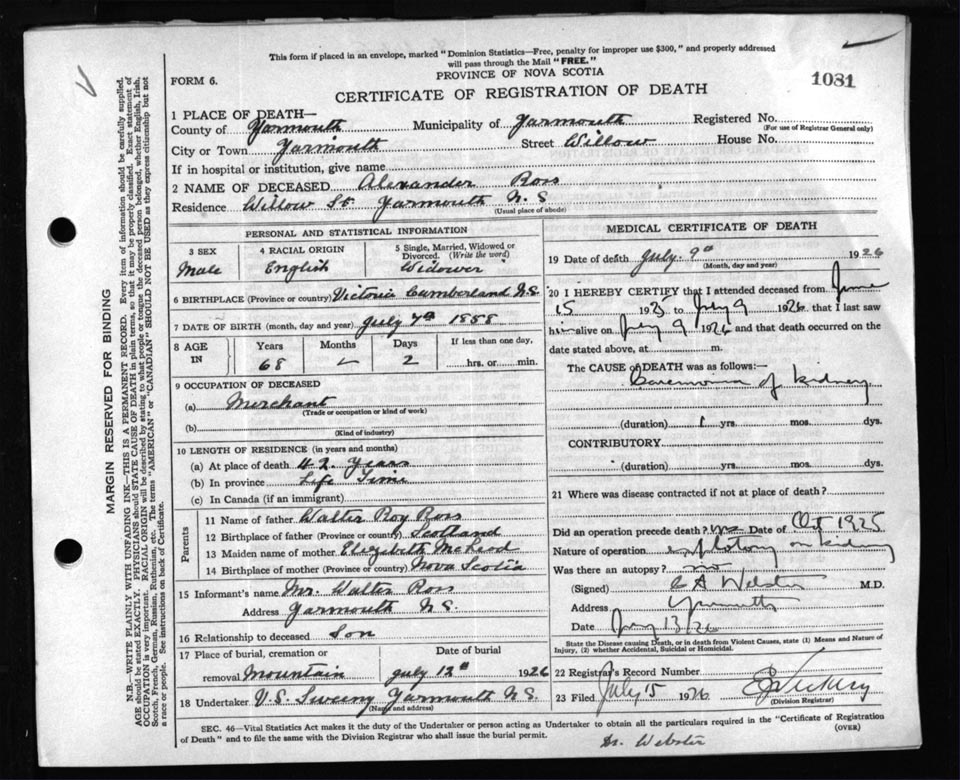 This form if placed in an envelope, marked "Dominion Statistics—Free, penalty for improper use $300," and properly addressed
will pass through the Mail "FREE."
FORM 6.
PROVINCE OF NOVA SCOTIA
1081
CERTIFICATE OF REGISTRATION OF DEATH
1 PLACE OF DEATH—
County of Yarmouth Municipality of Yarmouth Registered No.
(For use of Registrar General only)
City or Town Yarmouth Street Willow House No.
If in hospital or institution, give name
2 NAME OF DECEASED Alexander Ross
Residence Willow St. Yarmouth N.S
(Usual place of abode)
PERSONAL AND STATISTICAL INFORMATION
3 SEX 4 RACIAL ORIGIN 5 Single, Married, Widowed or
Divorced. (Write the word)
Male English Widower
6 BIRTHPLACE (Province or country) Victoria Cumberland N.S.
7 DATE OF BIRTH (month, day and year) July 7th 1858
8 AGE IN Years Months Days If less than one day,
68 – 2 hrs. or min.
9 OCCUPATION OF DECEASED
(a) Merchant
(Trade or occupation or kind of work)
(b)
(Kind of industry)
10 LENGTH OF RESIDENCE (in years and months)
(a) At place of death 42 Years
(b) In province Life Time
(c) In Canada (if an immigrant)
Parents
11 Name of father Walter Roy Ross
12 Birthplace of father (Province or country) Scotland
13 Maiden name of mother Elizabeth McLeod
14 Birthplace of mother (Province or country) Nova Scotia
15 Informant's name Mr. Walter Ross
Address Yarmouth N.S.
16 Relationship to deceased Son
17 Place of burial, cremation or Date of burial
removal Mountain July 12th 1926
18 Undertaker V.S. Sweeny Yarmouth N.S.
(Name and address)
MEDICAL CERTIFICATE OF DEATH
19 Date of death July 9th 1926
(Month, day and year)
20 I HEREBY CERTIFY that I attended deceased from June
15 1925 to July 9 1926 that I last saw
him alive on July 9 1926 and that death occurred on the
date stated above, at m.
The CAUSE of DEATH was as follows:—
of kidney
(duration) 1 yrs. mos. dys.
CONTRIBUTORY
(duration) yrs. mos. dys.
21 Where was disease contracted if not at place of death?
Did an operation precede death? yes Date of Oct 1925
Nature of operation on kidney
Was there an autopsy? no
(Signed) C A Webster M.D.
Address Yarmouth
Date July 13/26
State the Disease causing Death, or in death from Violent Causes, state (1) Means and Nature of
Injury, (2) whether Accidental, Suicidal or Homicidal.
22 Registrar's Record Number
23 Filed July 15 1926
(Division Registrar)
SEC. 46—Vital Statistics Act makes it the duty of the Undertaker or person acting as Undertaker to obtain all the particulars required in the "Certificate of Registration
of Death" and to file the same with the Division Registrar who shall issue the burial permit.
(OVER)
Dr. Webster
MARGIN RESERVED FOR BINDING
N.B.—WRITE PLAINLY WITH UNFADING INK—THIS IS A PERMANENT RECORD. Every item of information should be carefully supplied.
AGE should be stated EXACTLY. PHYSICIANS should STATE CAUSE OF DEATH in plain terms, so that it may be properly classified. Exact statement of
OCCUPATION is very important. RACIAL ORIGIN will be described by stating to what people or tongue the deceased person belonged, whether English, Irish,
Scotch, French, German, Russian, Ruthenian, etc. The terms "AMERICAN" or "CANADIAN" SHOULD NOT BE USED as they express citizenship but not
a race or people. See instructions on back of Certificate.